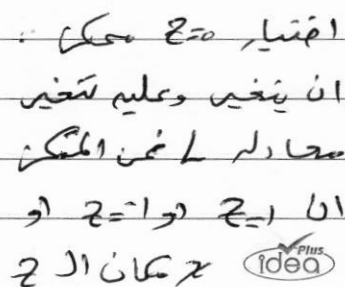 اختيار z=0 ممكن :
ان يتغير وعليه تتغير
معادلة L فمن الممكن
ان z=1 او z=-1 او
x مكان الـ z
Plus
idea